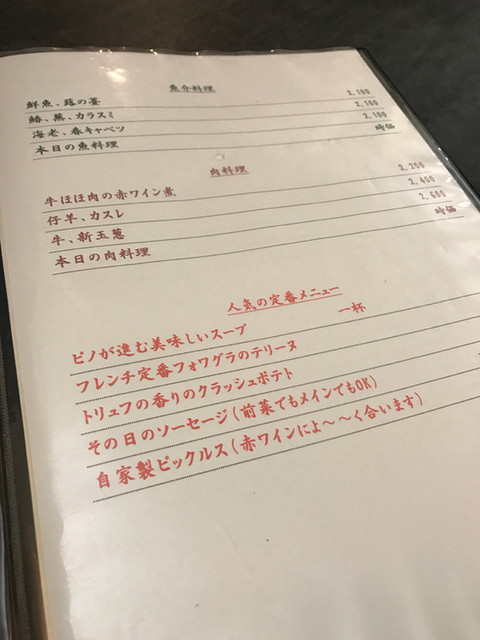 魚介料理
鮮魚、蕗の薹 2,100
鰆、蕪、カラスミ 2,100
海老、春キャベツ 2,100
本日の魚料理 時価
肉料理
牛ほほ肉の赤ワイン煮 2,200
仔羊、カスレ 2,400
牛、新玉葱 2,600
本日の肉料理 時価
人気の定番メニュー
ピノが進む美味しいスープ 一杯
フレンチ定番フォワグラのテリーヌ
トリュフの香りのクラッシュポテト
その日のソーセージ(前菜でもメインでもOK)
自家製ピックルス(赤ワインによ〜〜く合います)